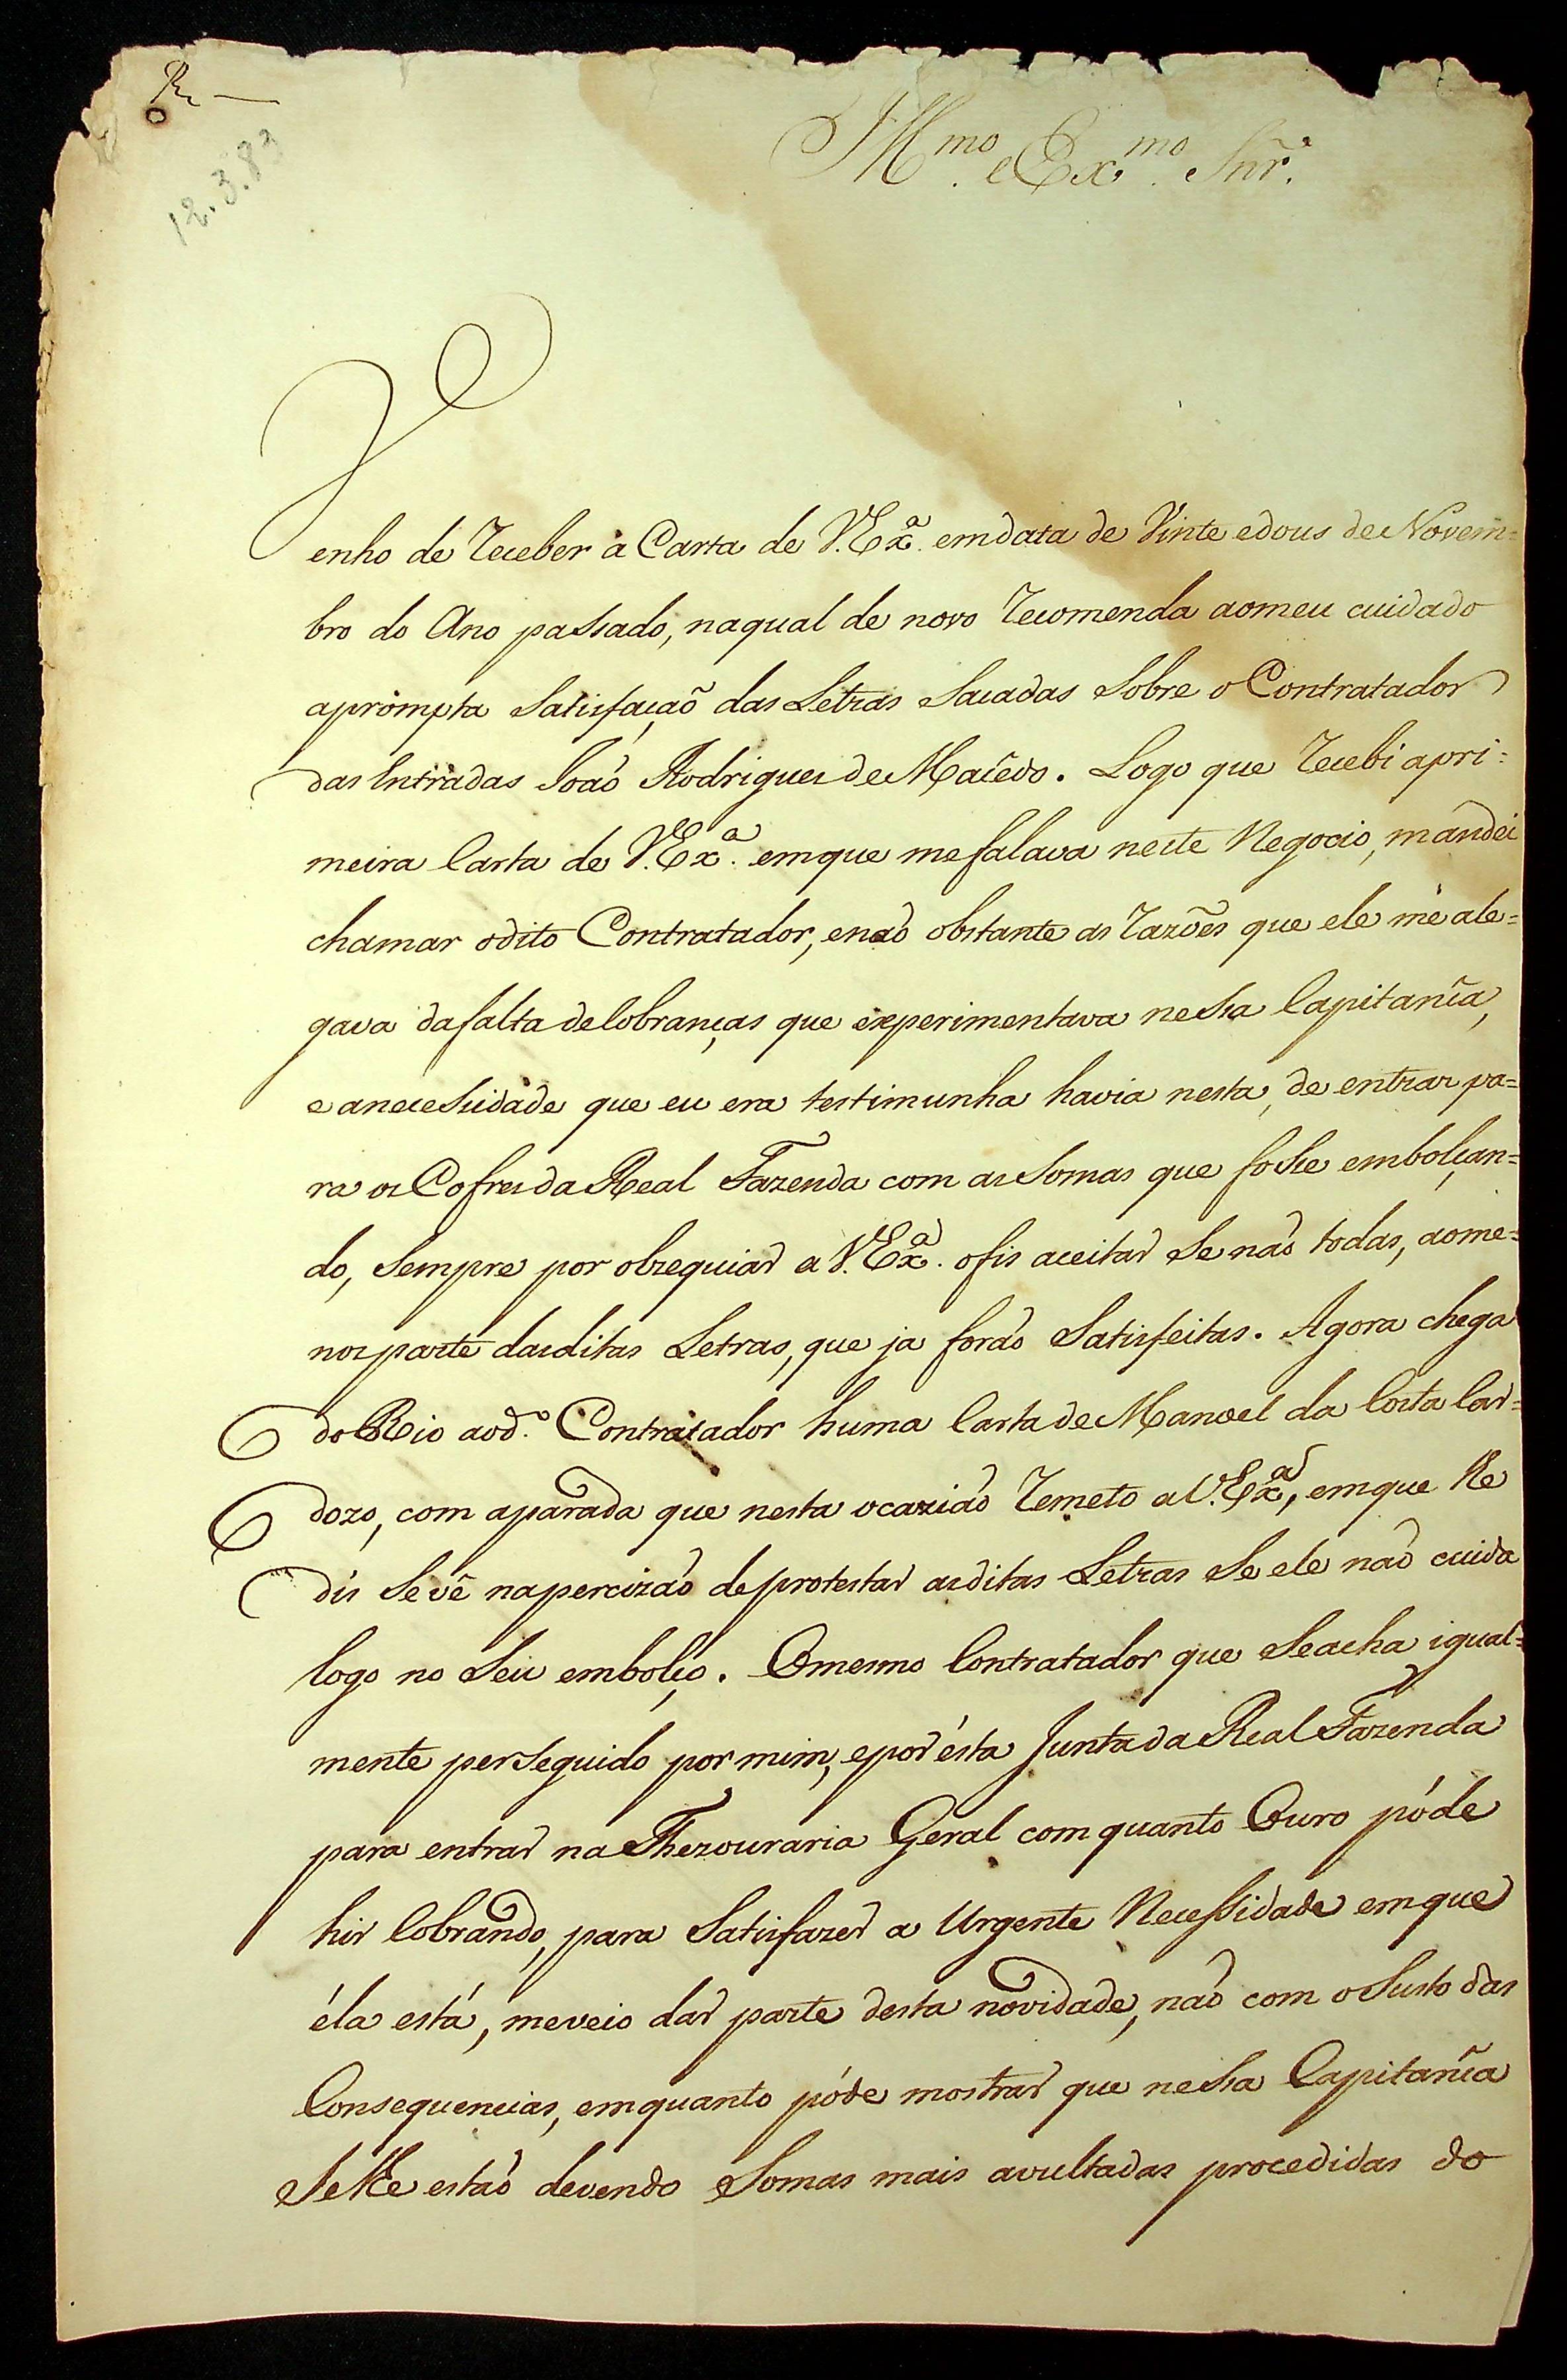 R.e —
12.3.83
Ill.mo e Ex.mo Snr.
Venho de receber a Carta de V. Ex.a em data de Vinte e dous de Novem=
bro do Ano passado, na qual de novo recomenda ao meu cuidado
a prompta Satisfação das Letras Sacadas Sobre o Contratador
das Entradas João Rodrigues de Macêdo. Logo que recebi a pri=
meira Carta de V. Ex.a em que me falava neste Negocio, mandei
chamar o dito Contratador, e não obstante as razões que ele me ale=
gava da falta de Cobranças que experimentava nessa Capitanîa,
e a necessidade que eu era testimunha havia nesta, de entrar pa=
ra os Cofres da Real Fazenda com as Somas que fosse embolçan=
do, Sempre por obzequiar a V. Ex.a o fis aceitar Se não todas, ao me=
nos parte das ditas Letras, que ja forão Satisfeitas. Agora chega
do Rio ao d.o Contratador huma Carta de Manoel da Costa Car=
dozo, com a parada que nesta ocazião remeto a V. Ex.a, em que lhe
dis Se vê na percizão de protestar as ditas Letras Se ele não cuida
logo no Seu embolço. O mesmo Contratador que Se acha igual=
mente perseguido por mim, e por ésta Junta da Real Fazenda
para entrar na Thezouraria Geral com quanto Ouro póde
hir Cobrando, para Satisfazer a Urgente Necessidade em que
éla está, me veio dar parte desta novidade, não com o Susto das
Consequencias, em quanto póde mostrar que nessa Capitanîa
Se lhe estão devendo Somas mais avultadas procedidas do